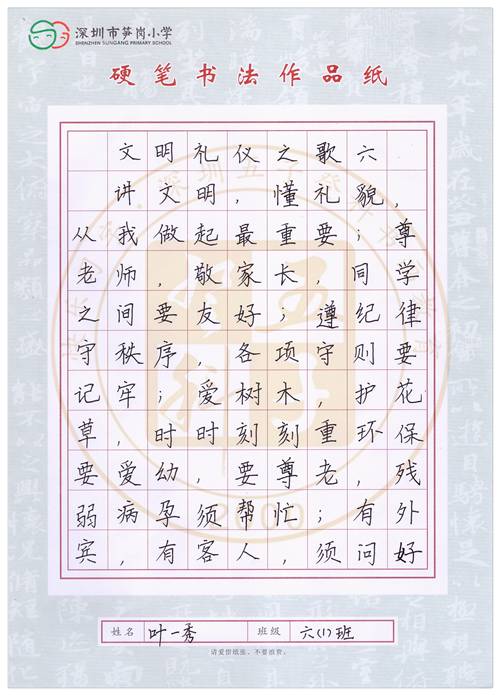 深圳市笋岗小学
SHENZHEN SUNGANG PRIMARY SCHOOL
硬笔书法作品纸
文明礼仪之歌六
讲文明，懂礼貌，
从我做起最重要；尊
老师，敬家长，同学
之间要友好；遵纪律
守秩序，各项守则要
记牢；爱树木，护花
草，时时刻刻重环保
要爱幼，要尊老，残
弱病孕须帮忙；有外
宾，有客人，须问好
姓名 叶一秀 班级 六(1)班
请爱惜纸张，不要浪费。